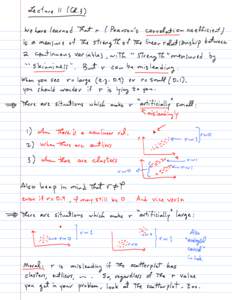 Lecture 11 (Ch.3)
We have learned that r (Pearson's correlation coefficient)
is a measure of the strength of the linear relationship between
2 continuous variables, with "strength" measured by
"skinniness". But r can be misleading.
When you see r = large (e.g. 0.9) or r = small (0.1),
you should wonder if r is lying to you.
There are situations which make r "artificially" small:
misleadingly
1) when there is a nonlinear rel.
2) when there are outliers
3) when there are clusters
r=0
Also keep in mind that
even if r = 0.9, may still be 0 And vice versa
There are situations which make r "artificially" large:
Also
Moral: r is misleading if the scatterplot has
clusters, outliers, ... So, regardless of the r value
you get in your problem, look at the scatterplot.